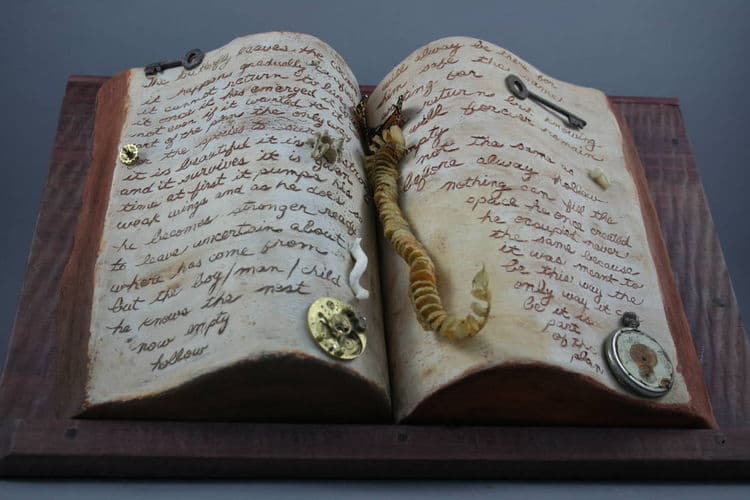 The butterfly leaves, the
it happens gradually
it cannot return to
it cannot has emerged
it once if it wanted to
not even
part of the plan the only
the species to
it is beautiful it is
and it survives it is
time at first it pumps his
weak wings and as he does
he becomes stronger ready
to leave uncertain about
where has come from
but the boy/man/child
he knows the nest
now empty
hollow
will always be there for
him safe the same
waiting for
return but knowing
will forever remain
empty
not the same as
before always hollow
nothing can fill the
space he once created
he occupied never
the same because
it was meant to
be this way the
only way it
be it is
part
of the
plan